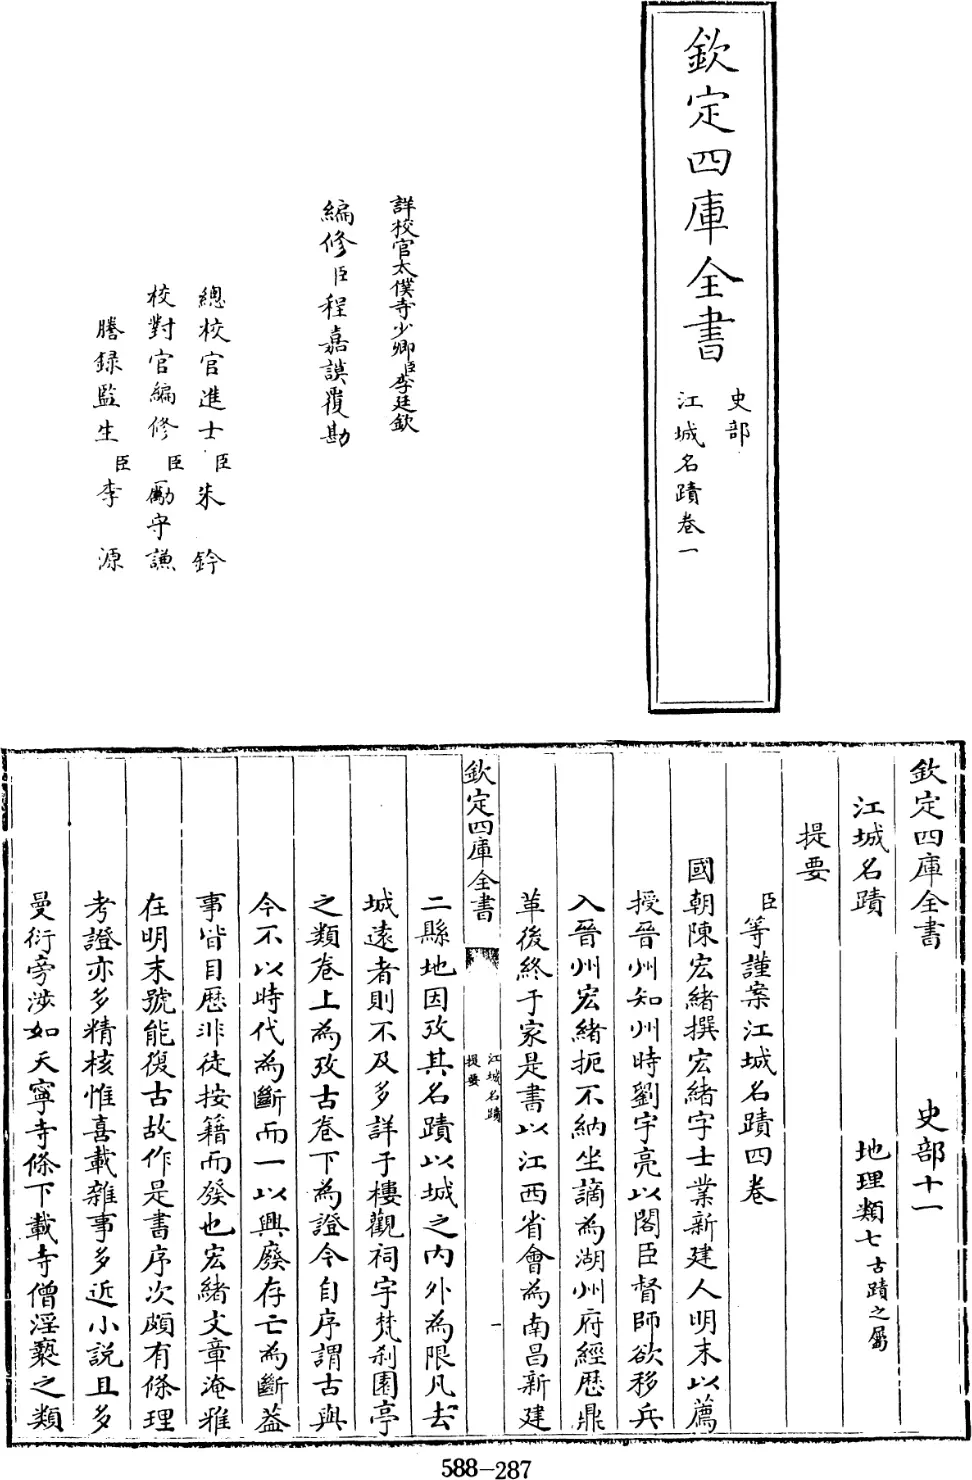 欽定四庫全書
史部
江城名蹟卷一
詳校官太僕寺少卿臣李廷欽
編修臣程嘉謨覆勘
總校官進士臣朱鈐
校對官編修臣勵守謙
謄錄監生臣李源
欽定四庫全書 史部十一
江城名蹟 地理類七古蹟之屬
提要
臣等謹案江城名蹟四卷
國朝陳宏緒撰宏緒字士業新建人明末以薦
授晉州知州時劉宇亮以閣臣督師欲移兵
入晉州宏緒扼不納坐謫為湖州府經歷鼎
革後終于家是書以江西省會為南昌新建
欽定四庫全書
江城名蹟
提要
一
二縣地因攷其名蹟以城之內外為限凡去
城遠者則不及多詳于樓觀祠宇梵刹園亭
之類卷上為攷古卷下為證今自序謂古與
今不以時代為斷而一以興廢存亡為斷蓋
事皆目歴非徒按籍而發也宏緒文章淹雅
在明末號能復古故作是書序次頗有條理
考證亦多精核惟喜載雜事多近小説且多
曼衍旁涉如天寧寺條下載寺僧淫褻之類
588-287